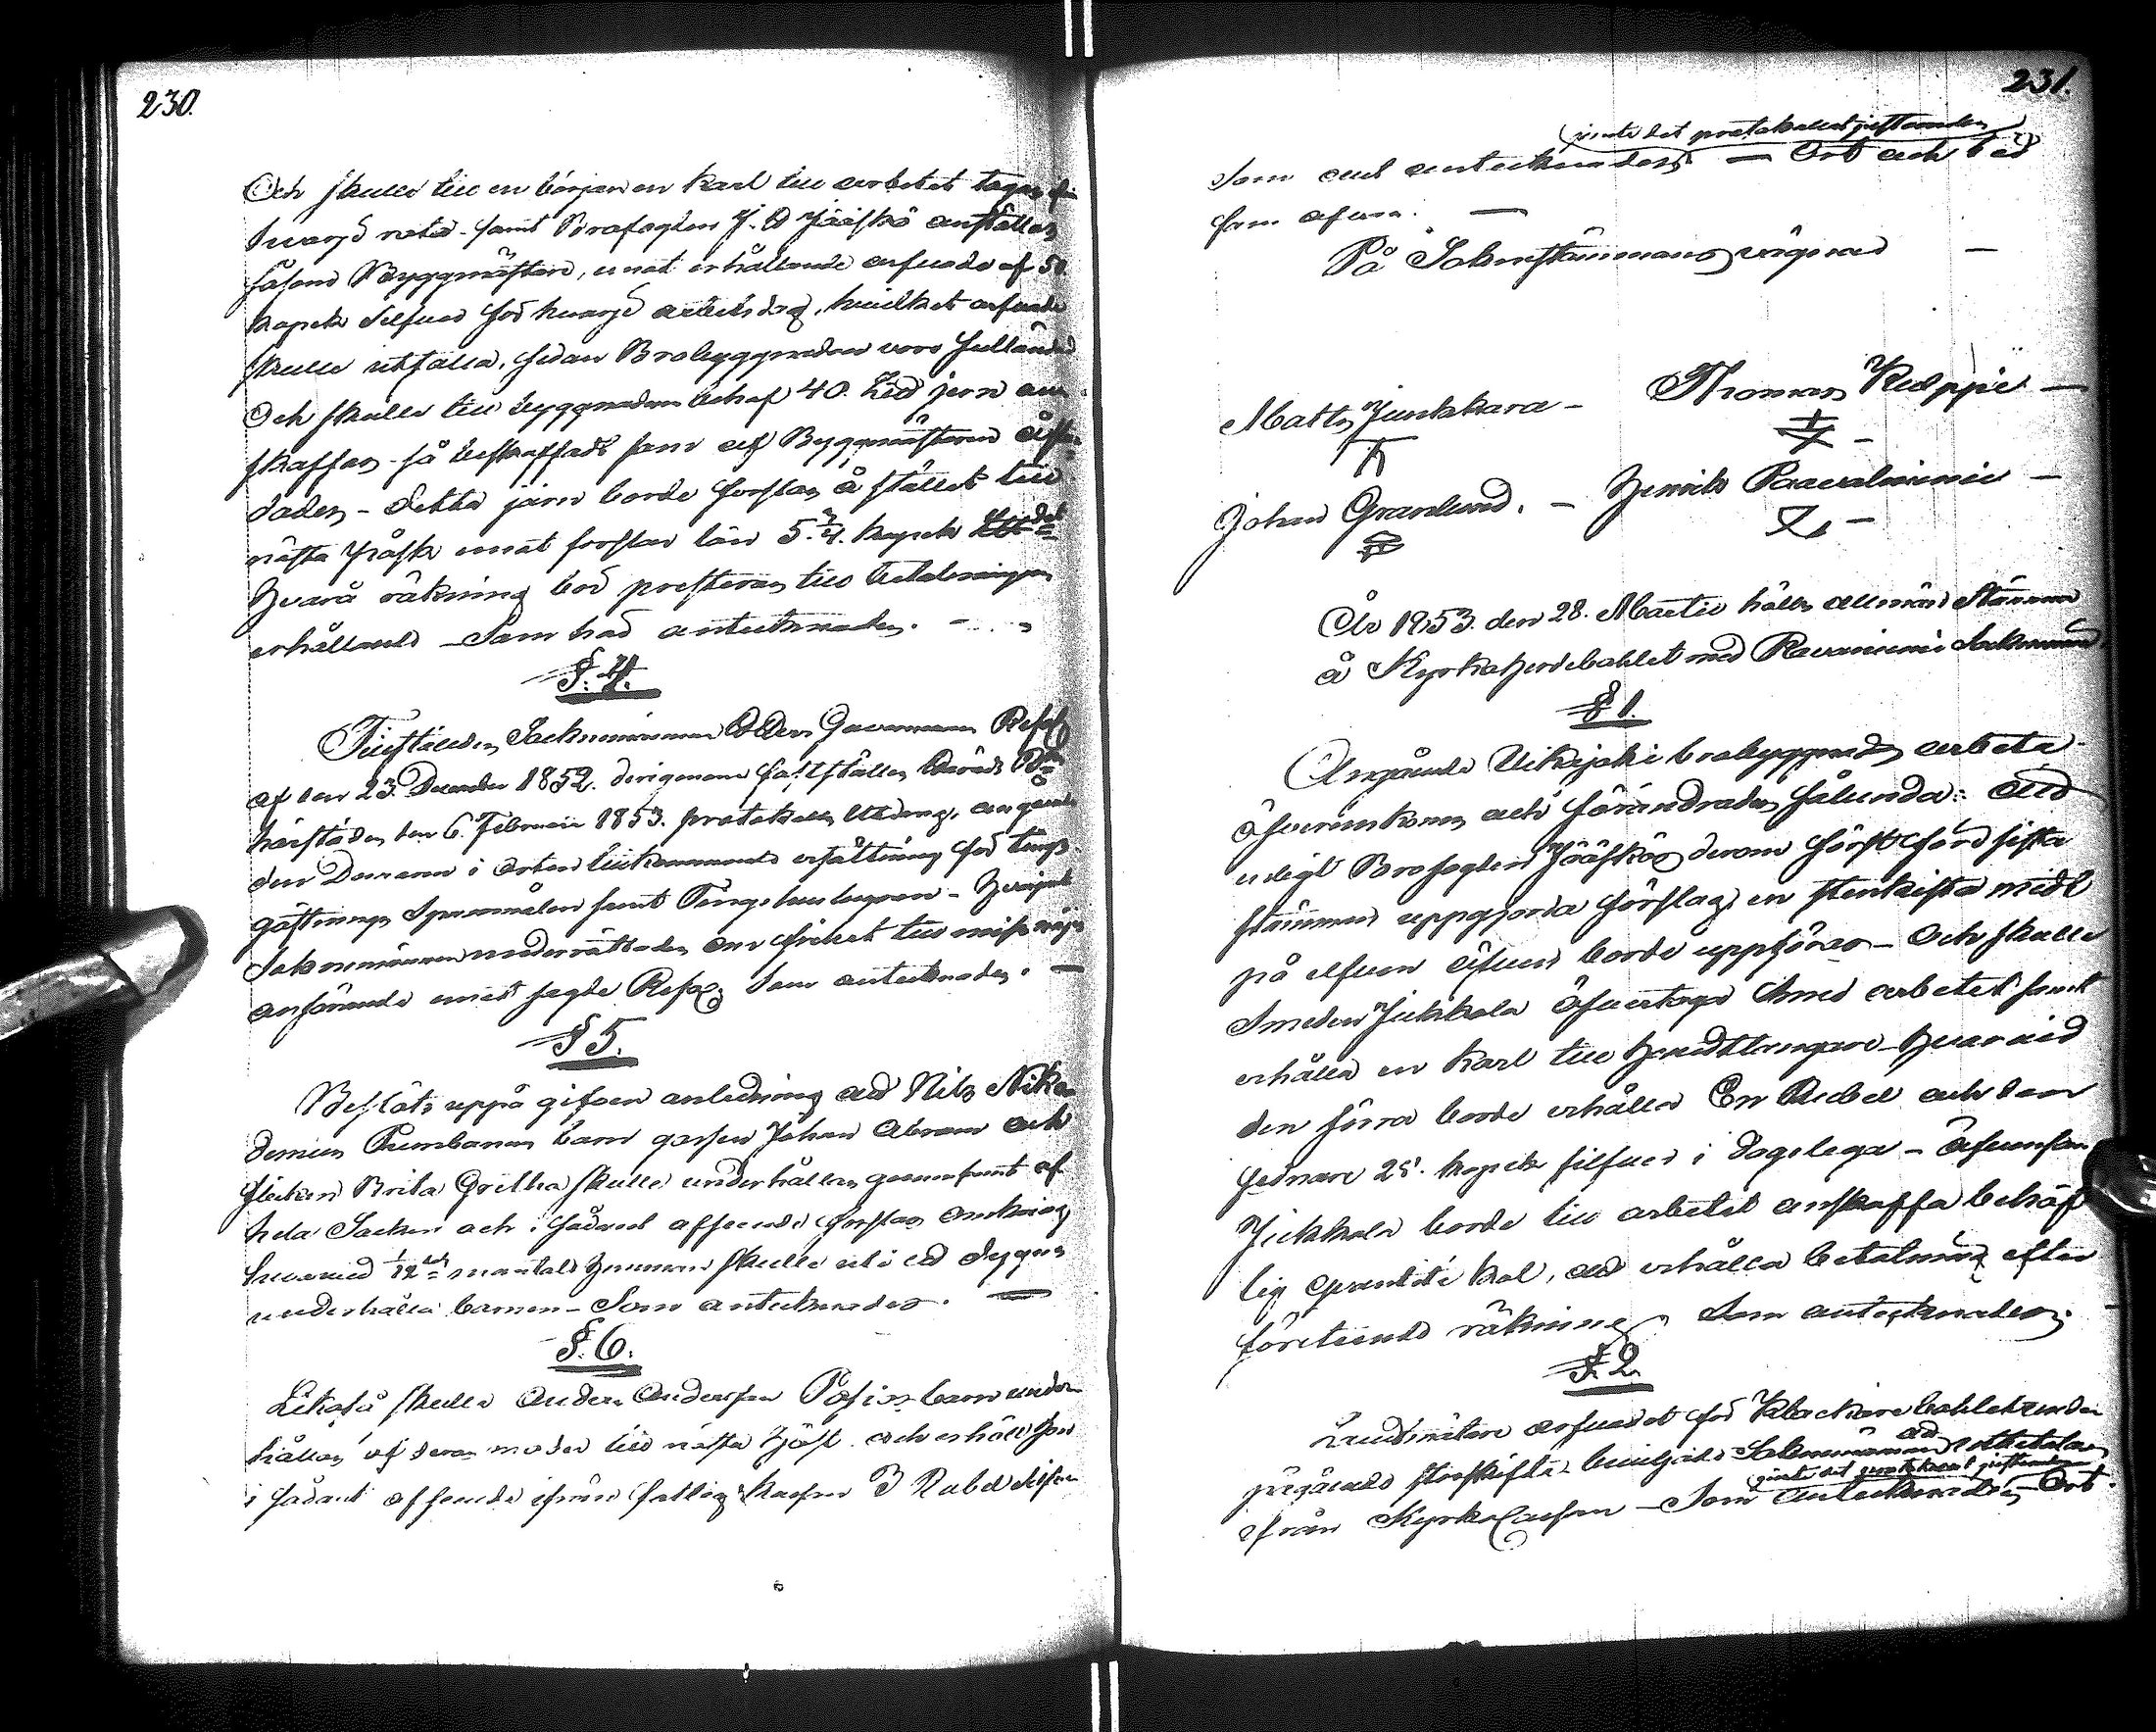 230.
Och skulle till en början en karl till arbetet tagas från
hwarje rote - samt Brofogden J. A Jääskö anställas
såsom Byggmästare, emot erhållande arfwode af 50
kopek Silfwer för hwarje arbetsdag, hwilket arfwode
skulle utfalla, sedan Brobyggnaden vore fulländad
Och skulle till byggnadens behof 40. L℔d jern an-
skaffas - så beskaffadt som af Byggmästaren
- detta järn borde forslas å stället till
nästa Påsk emot forslan lön 5 3/4. kopek
Hwarå räkning bör presteras till betalningens
erhållande - Som häd antecknades. -
§. 4.
Tillställdes Sockne­männerne Gouverneurs Resol
af den 23. December 1852. derigenom fastställes
härstädes den 6. Februarii 1853. protokolls utdrag, angående
den Domaren i orten tillkommande ersättning för tings
gästnings Spannmålen samt Tingshus hyran - Hwarjemte
Sokne­männerne underrättades om frihet till missnöjes
anförande emot sagde Resol. Som antecknades. -
§ 5.
Beslöts uppå gifven anledning att Nils Niko-
demus barn gossen Johan Abram och
flickan Brita Gretha skulle underhållas gemensamt af
hela Socken och i sådant afseende forslas omkring
hwarvid 1/12 mantals Hemman skulle uti ett dygn
underhålla barnen - Som antecknades. -
§. 6.
Likaså skulle Anders Andersson barn under-
hållas af deras moder till nästa höst och erhålla hon
i sådant afseende ifrån fattig kassan 3 Rubel Silfwer
231.
inte det protokollet justerades
Som ock antecknades - Ort och tid
som ofwan. -
På Soknestämmans vägnar -
Matts Juntikara - Thomas Kulppi -
Johan Granlund. - Henrik Paavalniemi -
År 1853. den 28. Martii hölls allmän Stämma
å Kyrkoherdebohlet med Rovaniemi Socknemän
§ 1.
Angående Vikajoki brobyggnads arbete
öfverenskoms och förändrades sålunda: att
enligt Brofogden Jääskös derom först förd sista
stämman uppgjorda förslag, en stenkista midt
på elfven äfven borde uppföras - Och skulle
Smeden Jukkala öfvertaga Smed arbetet samt
erhålla en karl till Handtlangare - Hvarvid
den förra borde erhålla En Rubel och den
sednare 25. kopek silfver i dagslega - äfvensom
Jukkala borde till arbetet anskaffa behöf-
lig quantité kol, att erhålla betalning efter
företeende räkning Som antecknades.
§. 2.
Landtmätare arfvodet för Klockare bohlets under
pågående storskifte beviljade Soknemännerne att utbetalas
inte det protokollet justerades
från Kyrko Cassan - Som antecknades - Ort